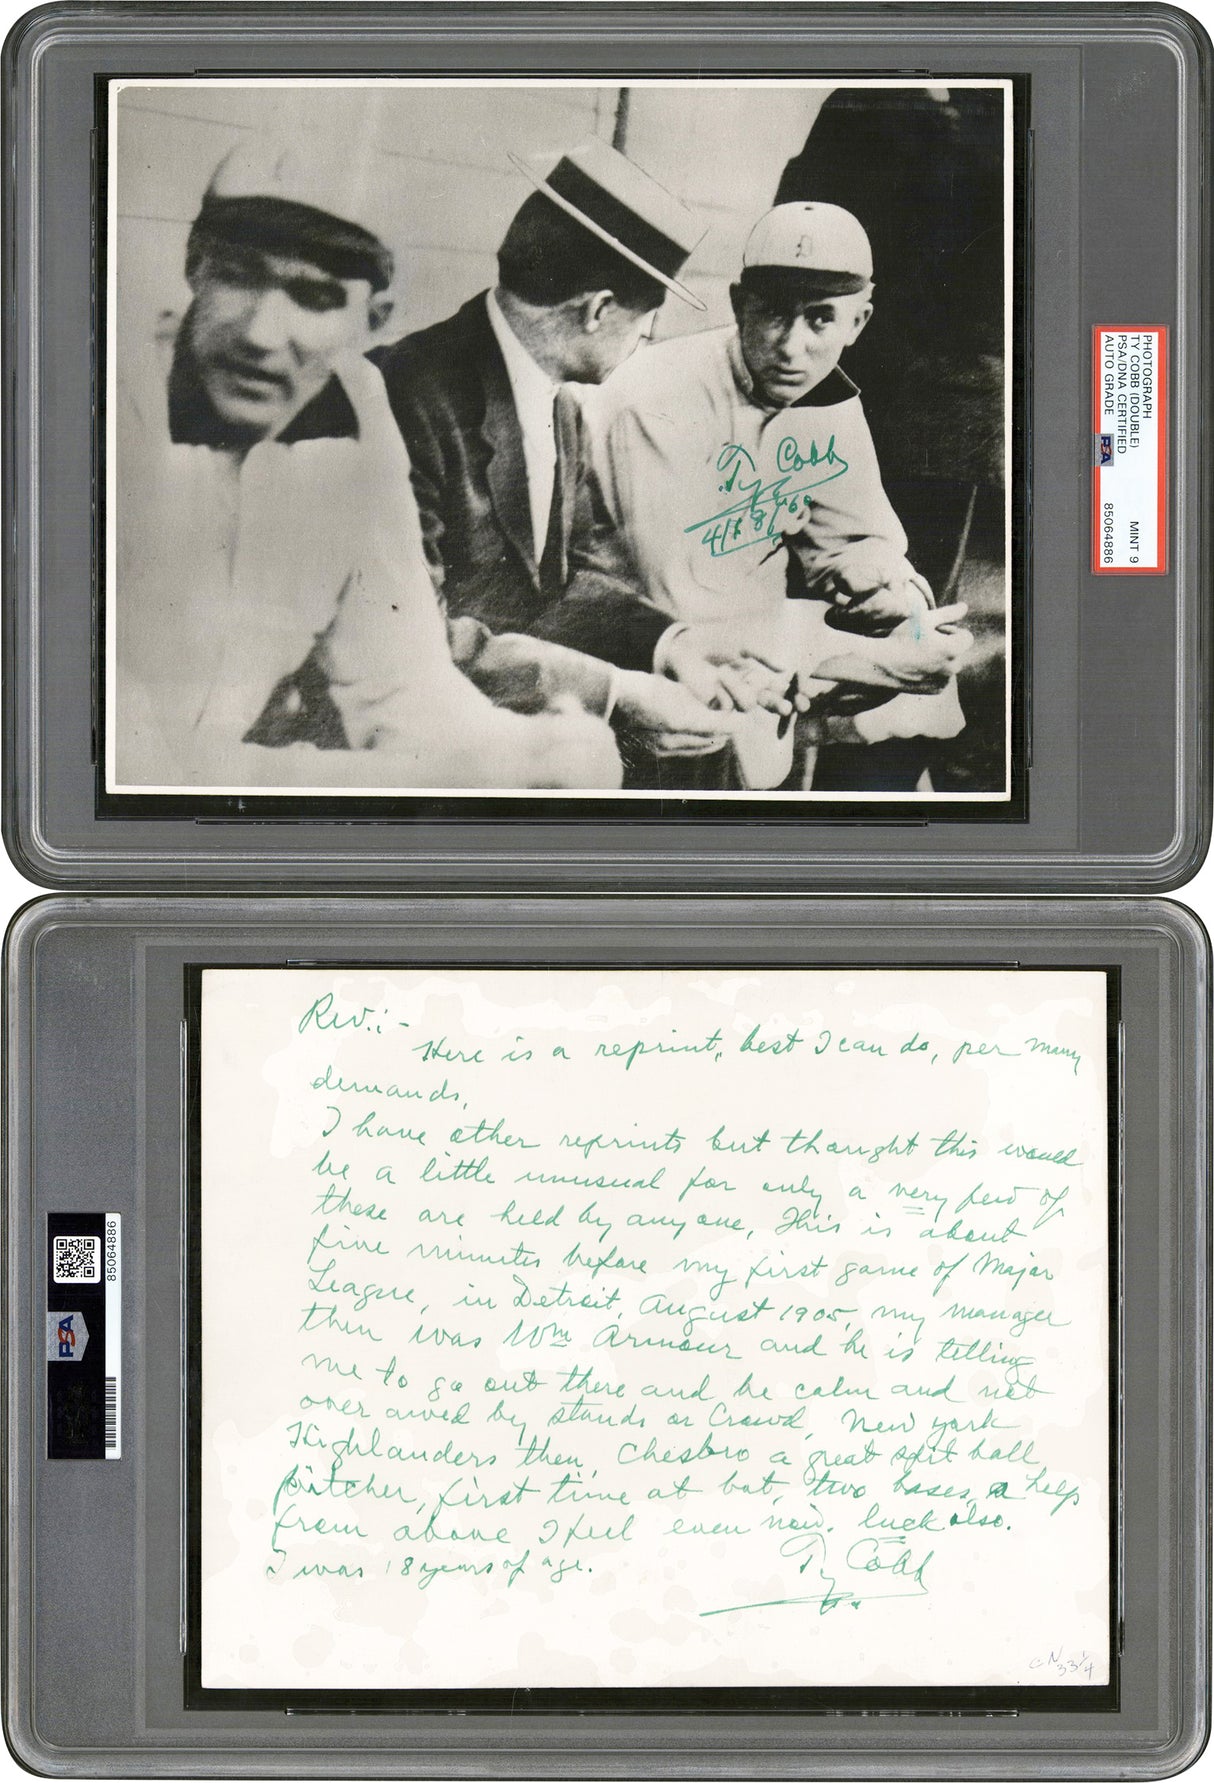 PHOTOGRAPH
TY COBB (DOUBLE)
PSA/DNA CERTIFIED
AUTO GRADE MINT 9
PSA 85064886
D
Ty Cobb
4/18/60
Rev.: -
Here is a reprint, best I can do, per many
demands,
I have other reprints but thought this would
be a little unusual for only a very few of
these are held by any one, This is about
five minutes before my first game of Major
League, in Detroit, August 1905, my manager
then was Wm Armour and he is telling
me to go out there and be calm and not
over awed by stands or Crowd, New York
Highlanders then, Chesbro a great spit ball
pitcher, first time at bat, two bases, a help
from above I feel even now. luck also.
I was 18 years of age. Ty Cobb
85064886
PSA